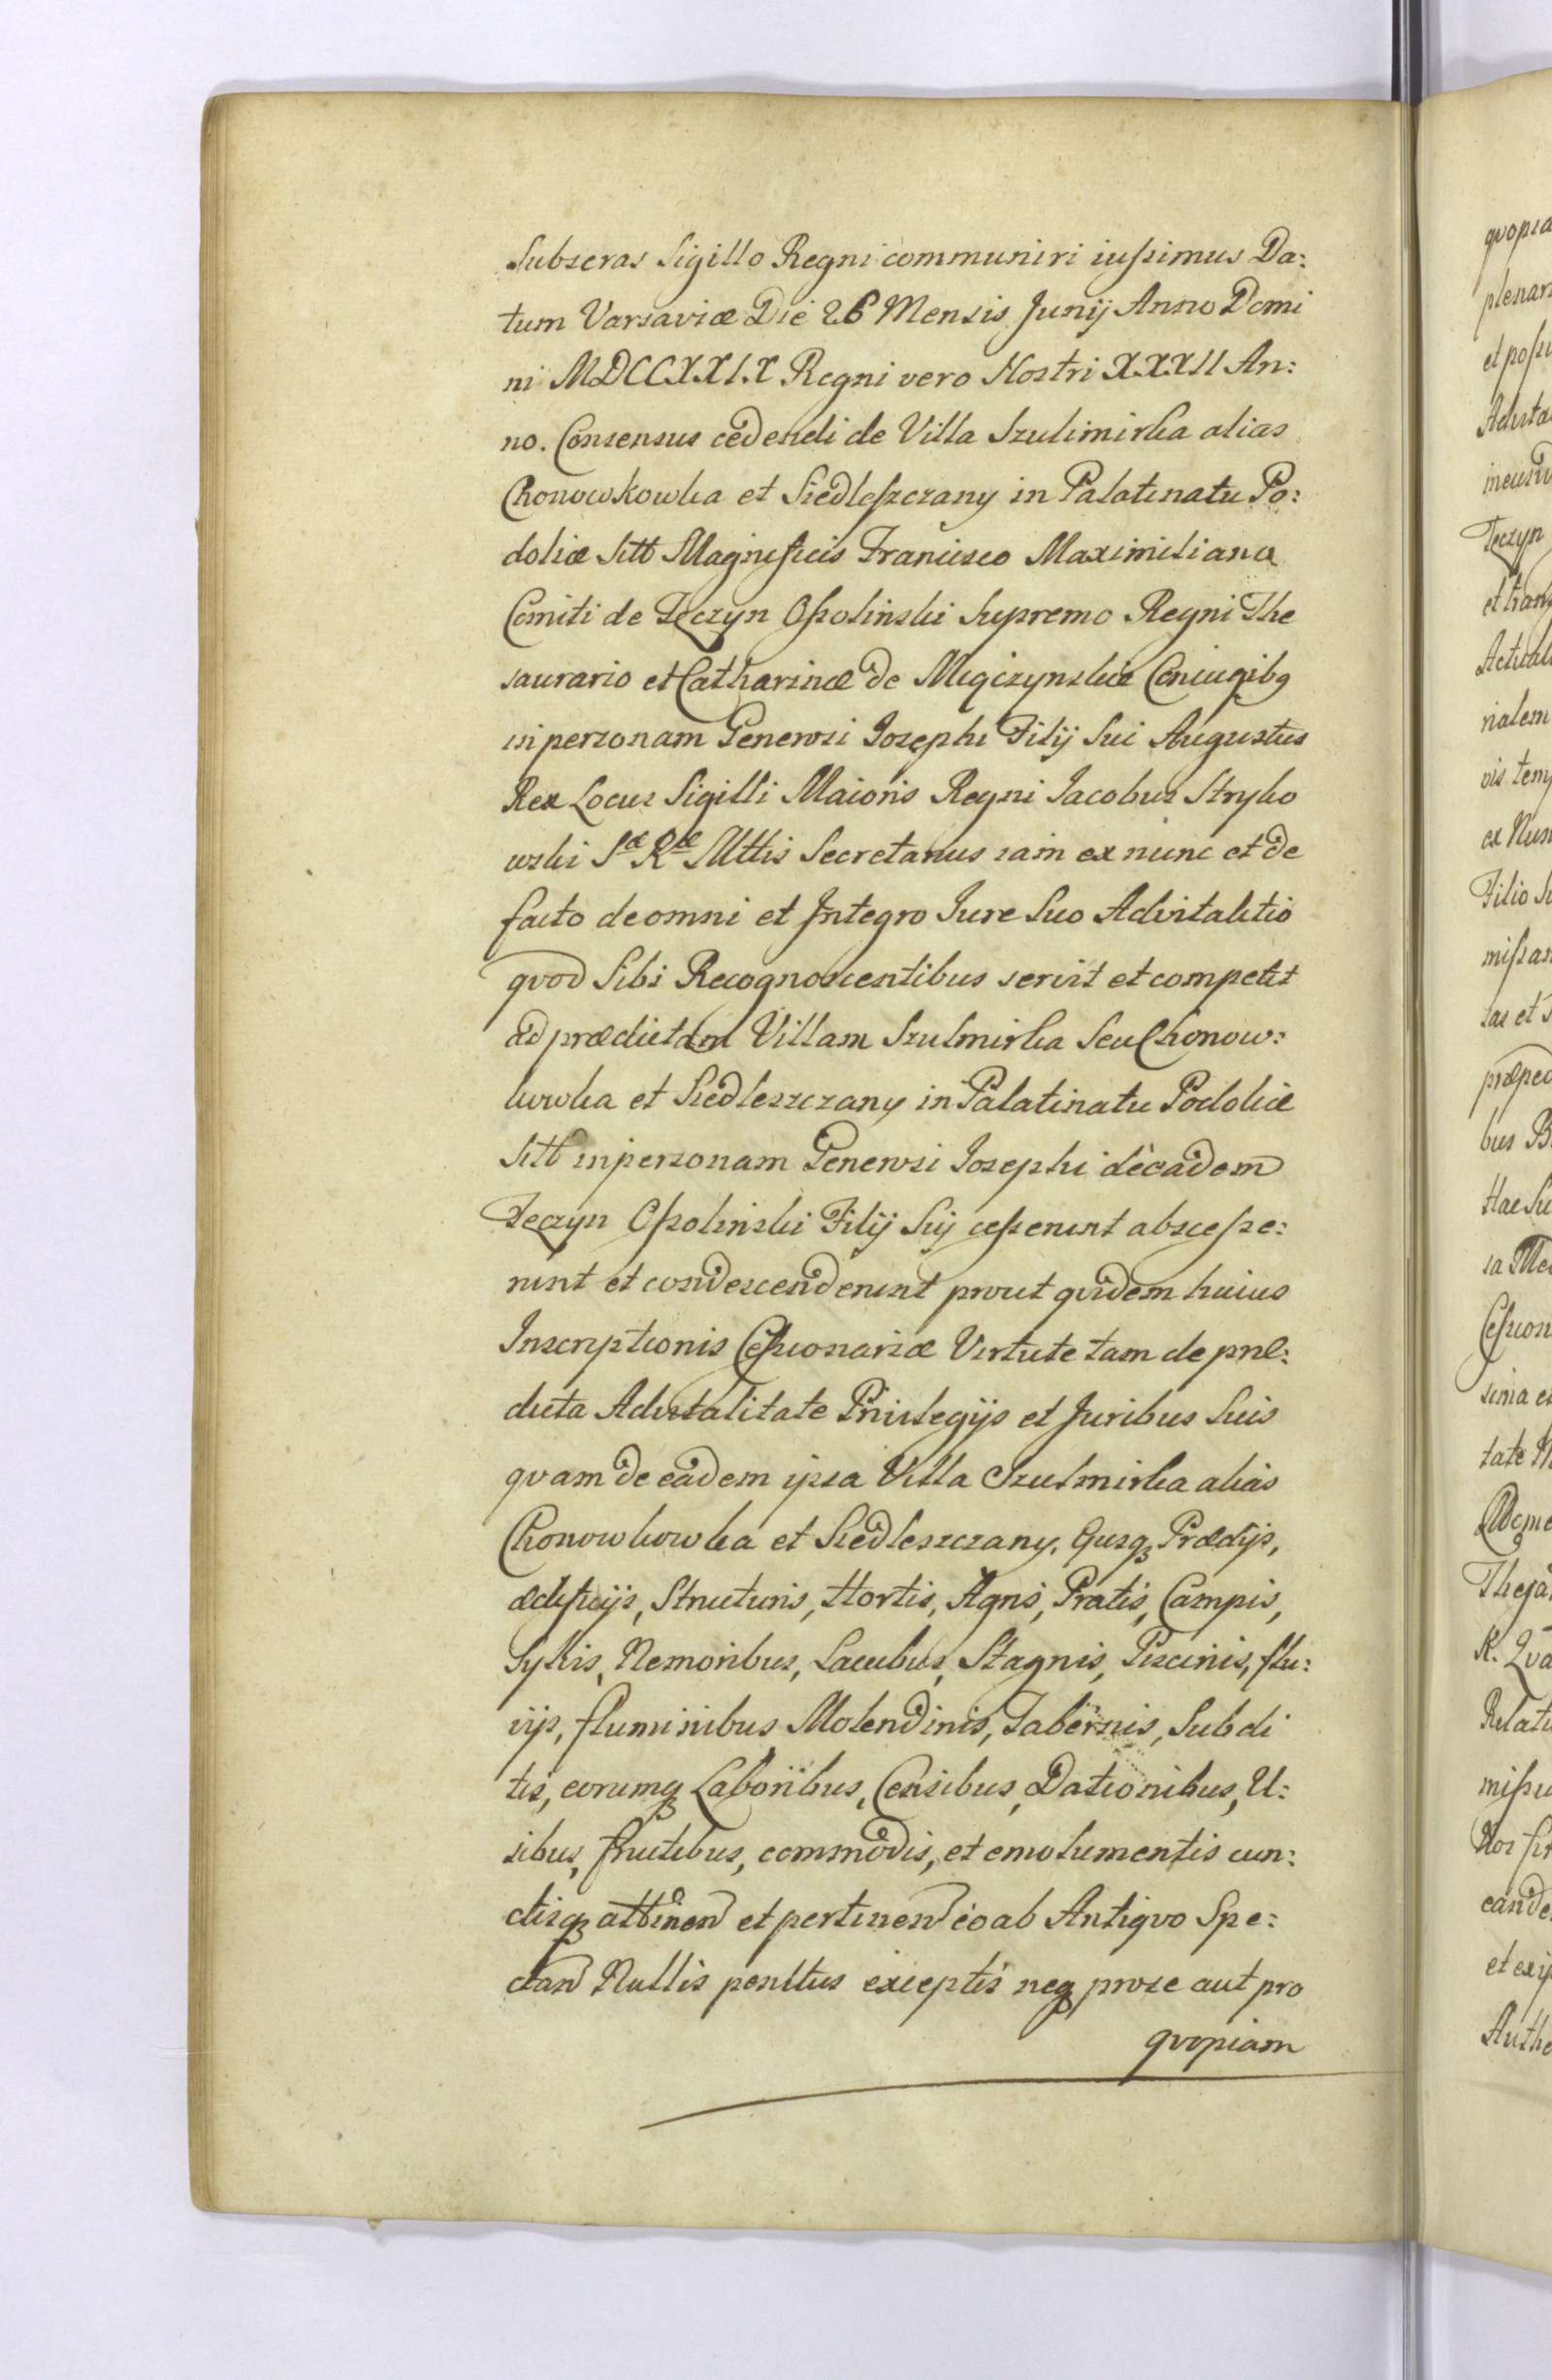 Subscras Sigillo Regni communiri iussimus Da:
tum Varsaviæ Die 26 Mensis Junij Anno Domi
ni MDCCXXIX Regni vero Nostri XXXII An:
no. Consensus cedendi de Villa Szulimirka alias
Chonowkowka et Siedleszczany in Palatinatu Po:
doliæ sitt Magnificis Francisco Maximiliana
Comiti de Tęczyn Ossolinski Supremo Regni The
saurario et Catharinæ de Miączynskie Coniugibq
in personam Generosi Josephi Filij Sui Augustus
Rex Locus Sigilli Maioris Regni Jacobus Stryko
wski Sæ Ræ Mttis Secretarius iam ex nunc et de
facto de omni et Integro Jure Suo Advitalitio
qvod Sibi Recognoscentibus servit et competit
ad prædictam Villam Szulmirka Seu Chonow:
kowka et Siedleszczany in Palatinatu Podoliæ
sitt in personam Generosi Josephi de eadem
Tęczyn Ossolinski Filij Sij cesserunt abscesse:
runt et condescenderunt prout qvidem huius
Inscryptionis Cessionariæ Virtute tam de præ:
dicta Advitalitate Privilegijs et Juribus Suis
qvam de eadem ipsa Villa Szulmirka alias
Chonowkowka et Siedleszczany, Ejusq Prædijs,
ædificijs, Structuris, Hortis, Agris, Pratis, Campis,
Sylvis, Nemoribus, Lacubus, Stagnis, Piscinis, flu:
vijs, fluminibus Molendinis, Tabernis, Subdi
tis, eorumq Laboribus, Censibus, Dationibus, U:
sibus, fructibus, commodis, et emolumentis cun:
ctisq attinen et pertinen eo ab Antiqvo Spe:
ctan Nullis penitus exceptis neq pro se aut pro
qvopiam